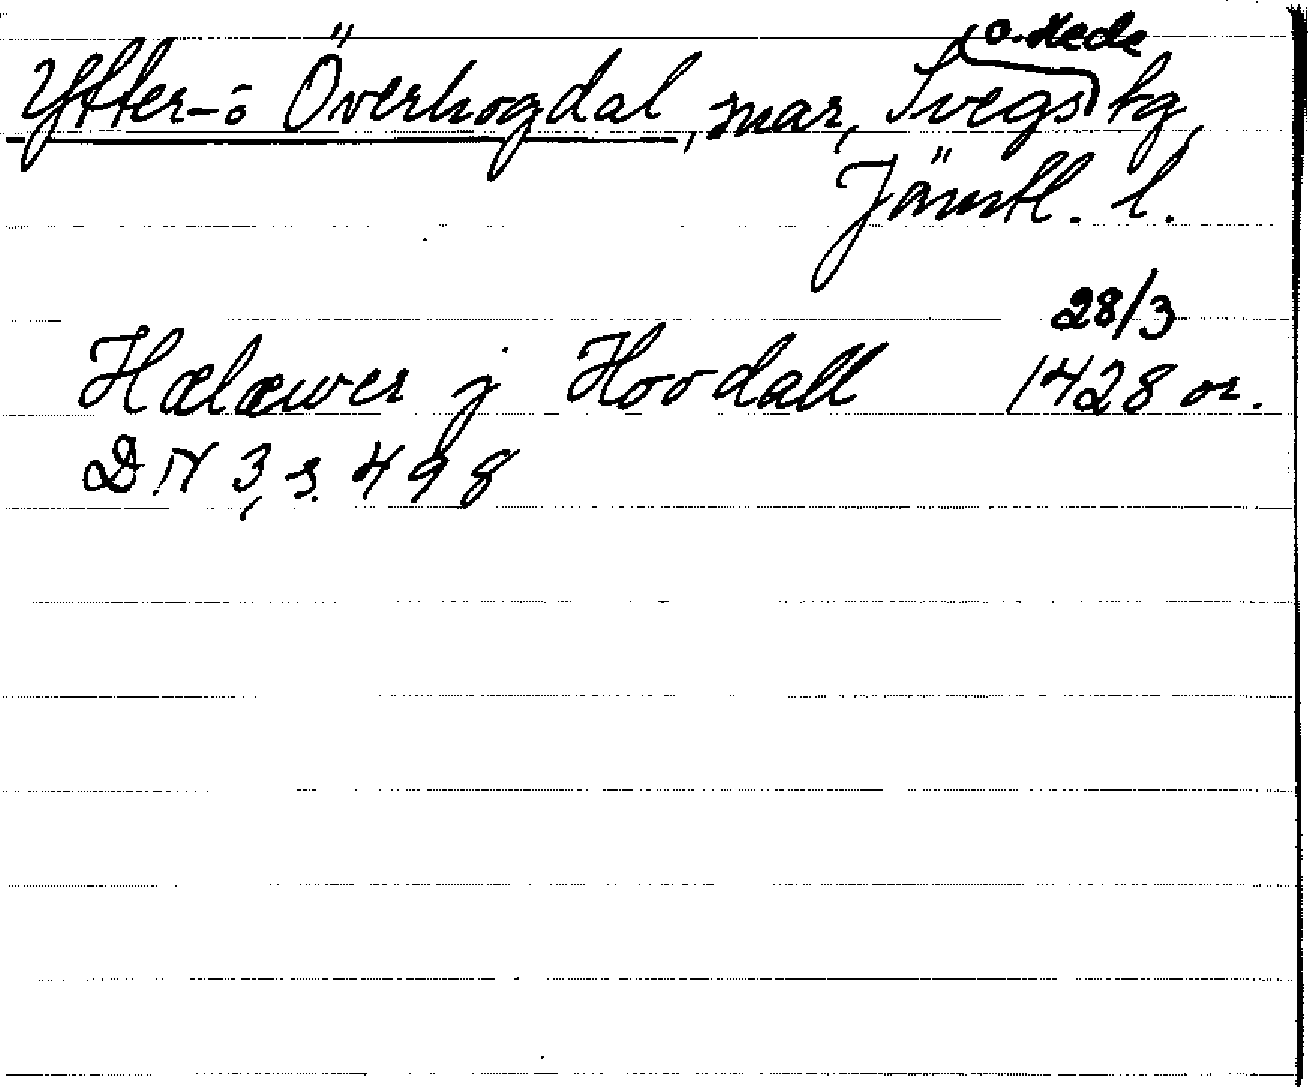 o. Hede
Ytter- o Överhogdal, snar, Svegs tg,
Jämtl. l.
28/3
Hælæwer j Hoodall 1428 or.
DN 3, s. 498